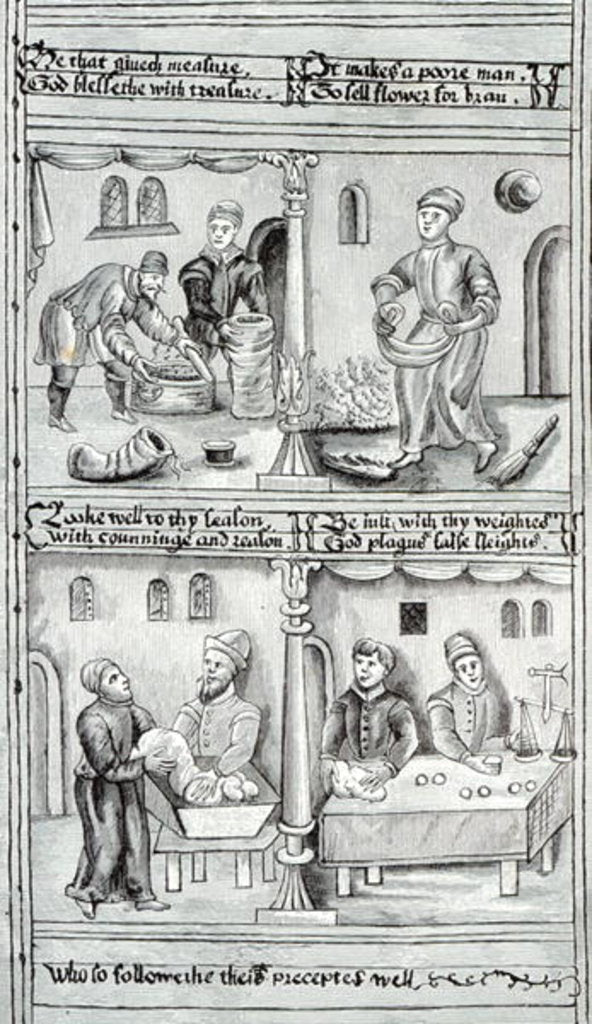 He that giuech mealure,
God blessethe with trealure.
It makes a poore man.
To sell flower for bran.
Looke well to thy sealon,
with counninge and realon.
Be iust with thy weightes
God plagus false sleights.
Who so followethe theis preceptes well